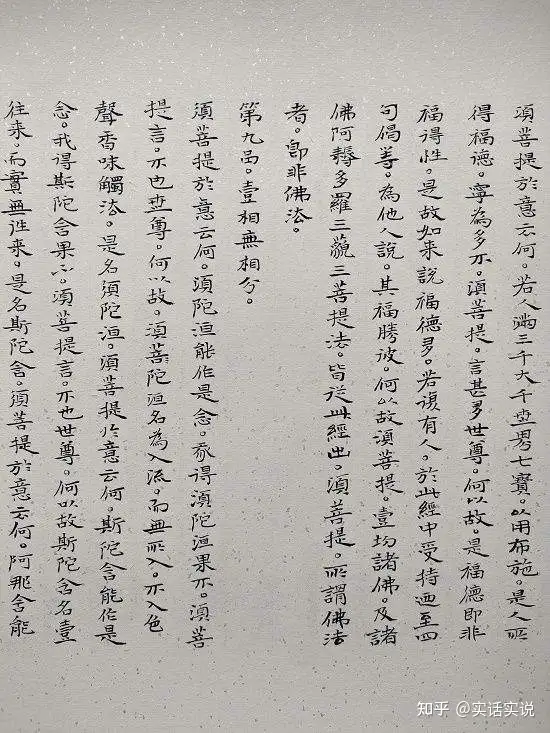 須菩提於意云何。若人滿三千大千世界七寶。以用布施。是人所
得福德。寧為多不。須菩提。言甚多世尊。何以故。是福德即非
福得性。是故如来說福德多。若復有人。於此經中受持乃至四
句偈等。為他人說。其福勝彼。何以故須菩提。壹切諸佛。及諸
佛阿耨多羅三藐三菩提法。皆從此經出。須菩提。所謂佛法
者。即非佛法。
第九品。壹相無相分。
須菩提於意云何。須陀洹能作是念。我得須陀洹果不。須菩
提言。不也世尊。何以故。須菩陀洹名為入流。而無所入。不入色
聲香味觸法。是名須陀洹。須菩提於意云何。斯陀含能作是
念。我得斯陀含果不。須菩提言。不也世尊。何以故斯陀含名壹
往来。而實無往来。是名斯陀含。須菩提於意云何。阿那含能
知乎 @实话实说